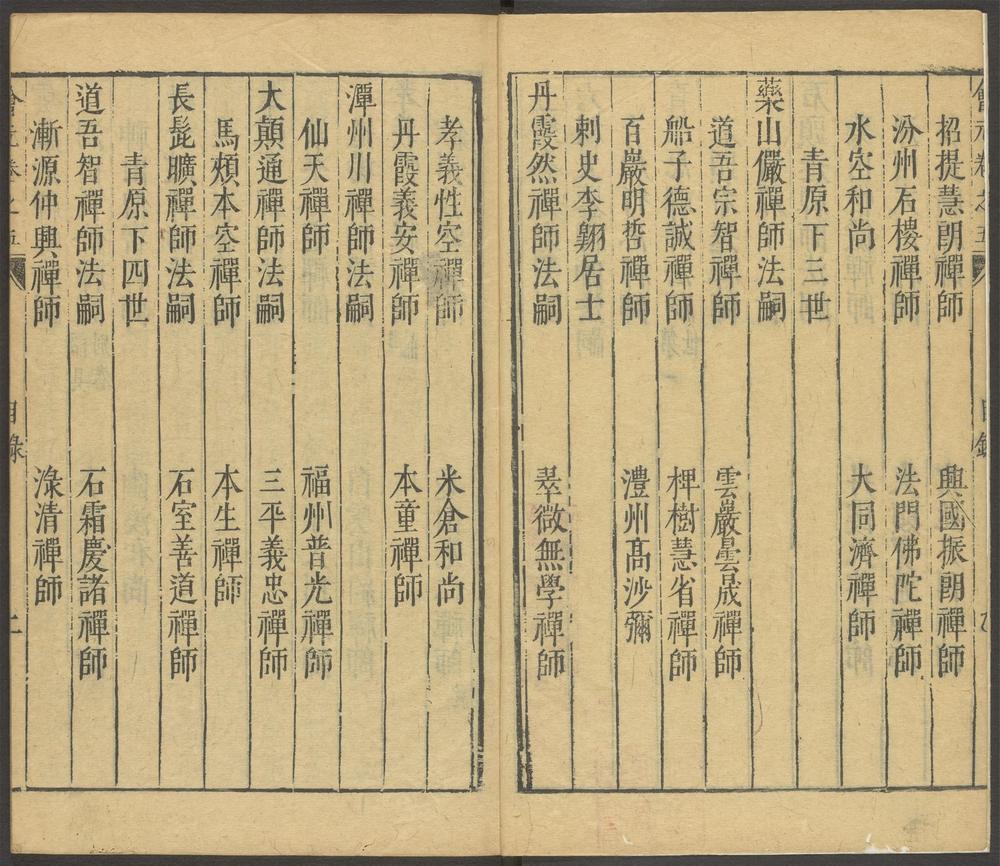 會元卷之五 目錄
招提慧朗禪師 興國振朗禪師
汾州石樓禪師 法門佛陀禪師
水空和尚 大同濟禪師
青原下三世
藥山儼禪師法嗣
道吾宗智禪師 雲巖曇晟禪師
船子德誠禪師 椑樹慧省禪師
百巖明哲禪師 澧州高沙彌
刺史李翺居士
丹霞然禪師法嗣 翠微無學禪師
孝義性空禪師 米倉和尚
丹霞義安禪師 本童禪師
潭州川禪師法嗣
仙天禪師 福州普光禪師
大顛通禪師法嗣 三平義忠禪師
馬頰本空禪師 本生禪師
長髭曠禪師法嗣 石室善道禪師
青原下四世
道吾智禪師法嗣 石霜慶諸禪師
漸源仲興禪師 淥清禪師
會元卷之五 目錄 二